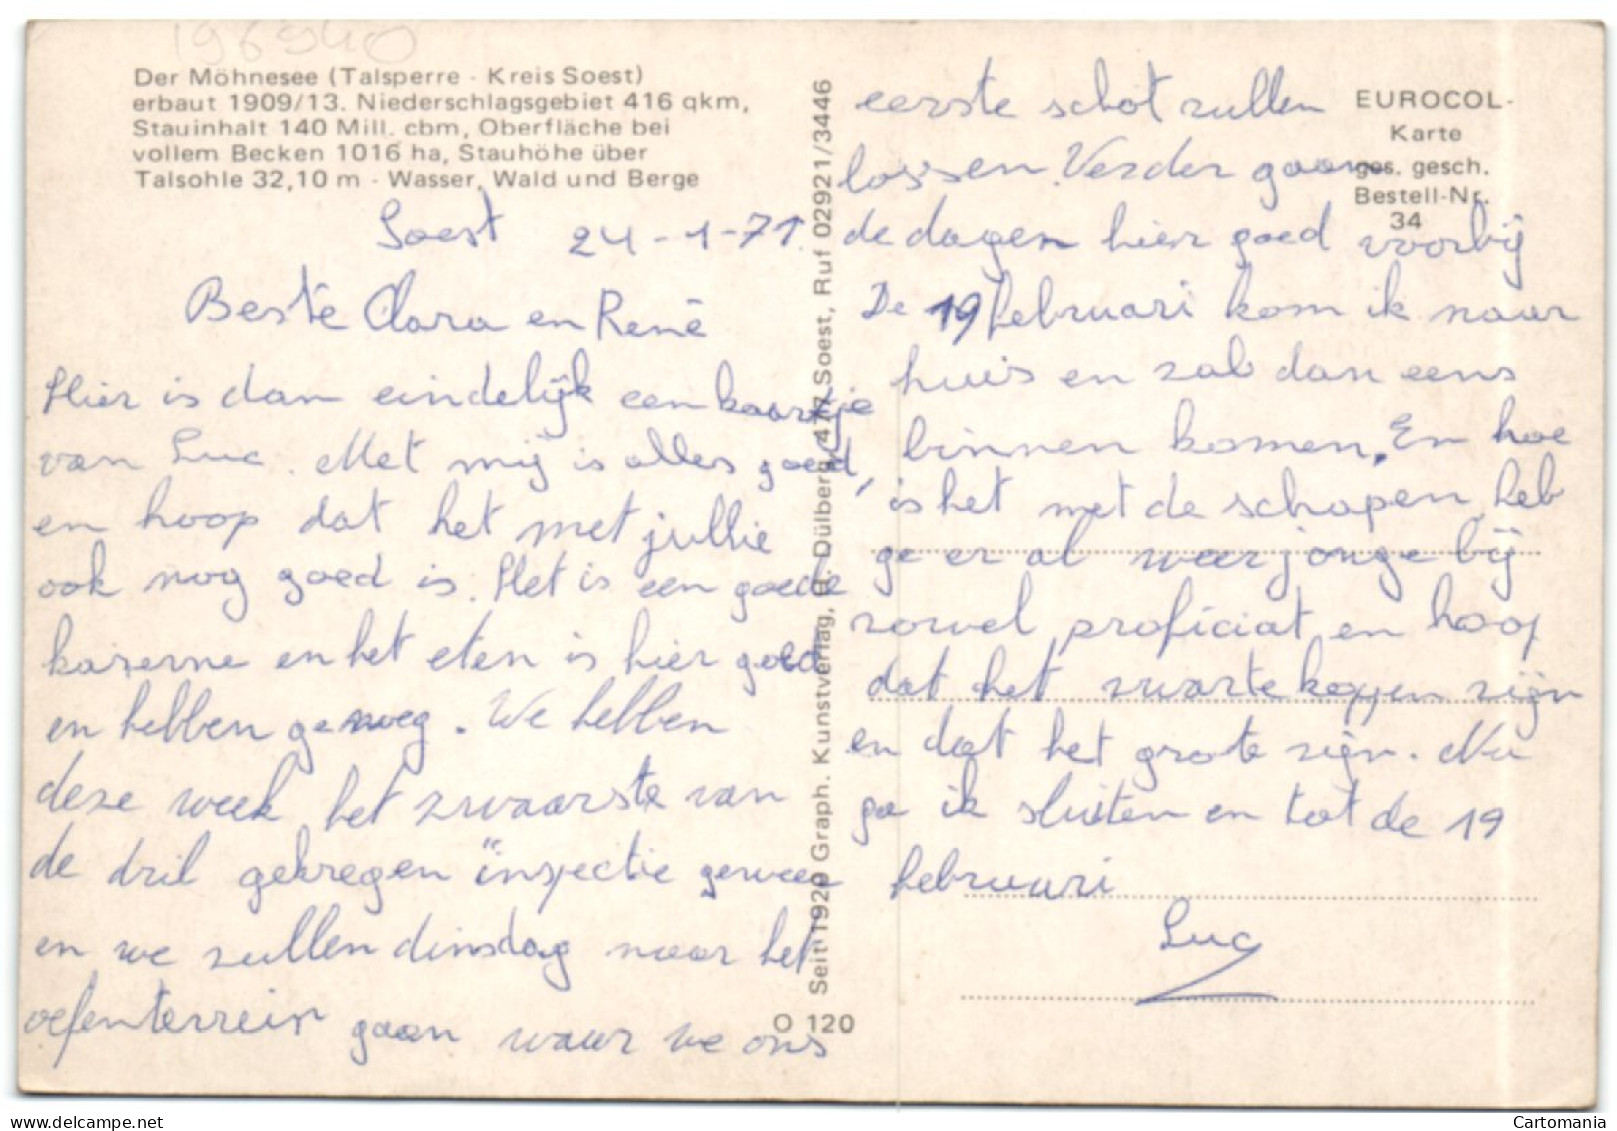 196940
Der Möhnesee (Talsperre - Kreis Soest)
erbaut 1909/13. Niederschlagsgebiet 416 qkm,
Stauinhalt 140 Mill. cbm, Oberfläche bei
vollem Becken 1016 ha, Stauhöhe über
Talsohle 32,10 m - Wasser, Wald und Berge
Soest 24-1-71
Beste Clara en René
Hier is dan eindelijk een kaartje
van Luc. Met mij is alles goed,
en hoop dat het met jullie
ook nog goed is. Het is een goede
kazerne en het eten is hier goed
en hebben genoeg. We hebben
deze week het zwaarste van
de dril gekregen "inspectie geweer
en we zullen dinsdag naar het
oefenterrein gaan waar we ons
Seit 1920 Graph. Kunstverlag, H. Dülberg, 477 Soest, Ruf 02921/3446
O 120
eerste schot zullen
lossen. Verder gaan
de dagen hier goed voorbij
De 19 februari kom ik naar
huis en zal dan eens
binnen komen. En hoe
is het met de schapen, heb
ge er al weer jonge bij
zowel proficiat en hoop
dat het zwartekoppen zijn
en dat het grote zijn. Nu
ga ik sluiten en tot de 19
februari
Luc
EUROCOL-
Karte
ges. gesch.
Bestell-Nr.
34
Cartomania